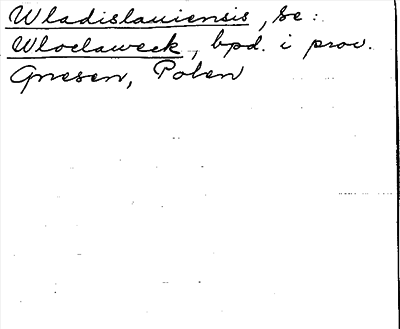 Wladislauiensis, se:
Wloclaweck, bpd. i prov.
Gnesen, Polen